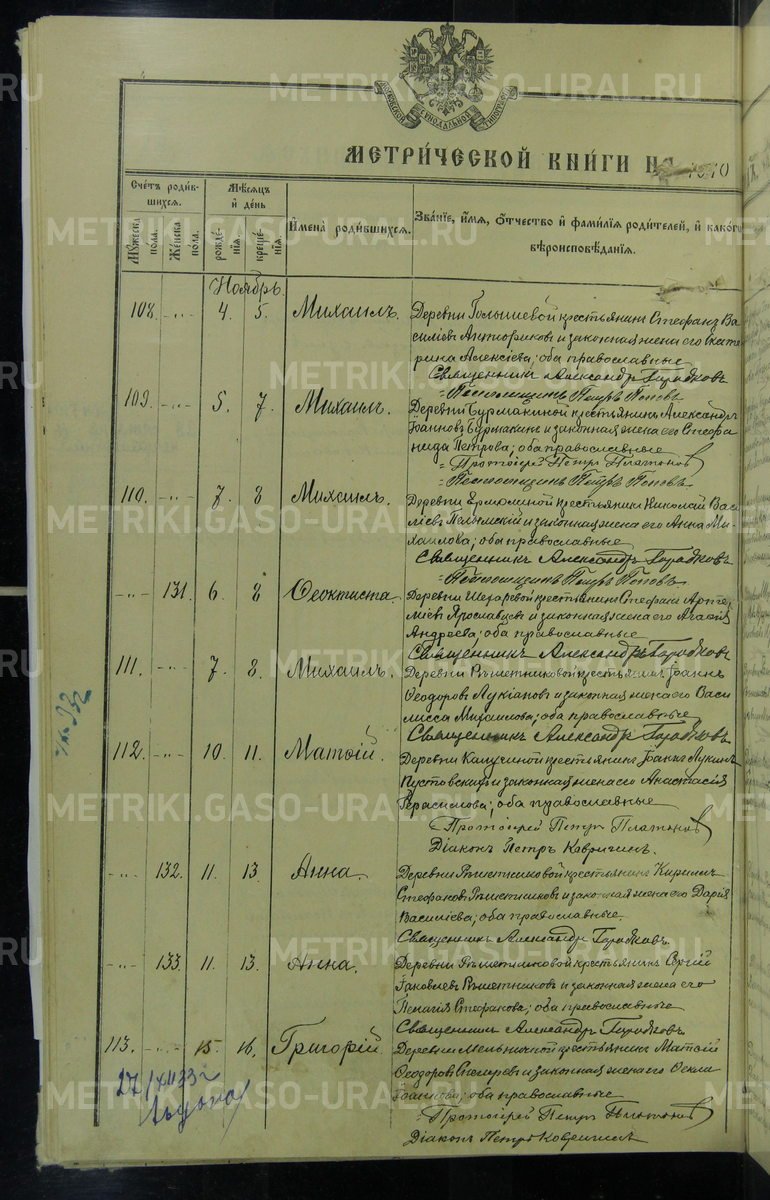 МЕТРИ́ЧЕСКОЙ КНИ́ГИ НА 1910
Счетъ роди́вшихся.
Мѣсяцъ и́ день
Имена̀ роди́вшихся.
Зва́нїе, и́мя, о́тчество и́ фами́лїя роди́телей, и́ како́гѡ
вѣроисповѣ́данїя.
Му́жеска по́ла.
Же́нска по́ла.
рожде́нїя.
креще́нїя.
Ноябрь
108. -„- 4. 5. Михаилъ.
Деревни Голышевой крестьянинъ Стефанъ Ва-
силіевъ и законная жена его Екате-
рина Алексіева; оба православные
Священникъ Александръ Городковъ
Псаломщикъ Петръ Поповъ
109. -„- 5. 7. Михаилъ.
Деревни Бурмакиной крестьянинъ Александръ
Іоанновъ Бурмакинъ и законная жена его Стефа-
нида Петрова; оба православные
Протоіерей Петръ Платоновъ
Псаломщикъ Петръ Поповъ
110. -„- 7. 8 Михаилъ.
Деревни Ермолиной крестьянинъ Николай Васи-
ліевъ Пелымскій и законная жена его Анна Ми-
хаилова; оба православные
Священникъ Александръ Городковъ
Псаломщикъ Петръ Поповъ
-„- 131. 6. 8 Ѳеоктиста.
Деревни крестьянинъ Стефанъ Арте-
міевъ Ярославцевъ и законная жена его Агаѳія
Андреева; оба православные
Священникъ Александръ Городковъ
111. -„- 7. 8. Михаилъ.
Деревни Рѣшетниковой крестьянинъ Іоаннъ
Ѳеодоровъ Лукіановъ и законная жена его Васи-
лисса Михаилова; оба православные
Священникъ Александръ Городковъ
112. -„- 10. 11. Матѳій.
Деревни крестьянинъ Іоаннъ Лукинъ
Пустовскихъ и законная жена его Анастасія
Герасимова; оба православные
Протоіерей Петръ Платоновъ
Діаконъ Петръ Кавричинъ.
-„- 132. 11. 13. Анна.
Деревни Рѣшетниковой крестьянинъ Кириллъ
Стефановъ Рѣшетниковъ и законная жена его Дарія
Василіева; оба православные.
Священникъ Александръ Городковъ.
-„- 133. 11. 13. Анна.
Деревни Рѣшетниковой крестьянинъ Сергій
Іаковлевъ Рѣшетниковъ и законная жена его
Пелагія Стефанова; оба православные
Священникъ Александръ Городковъ.
113. -„- 15. 16. Григорій
Деревни Мельничной крестьянинъ Матѳій
Ѳеодоровъ и законная жена его Ѳекла
Іоаннова; оба православные
Протоіерей Петръ Платоновъ
Діаконъ Петръ Кавричинъ
METRIKI.GASO-URAL.RU